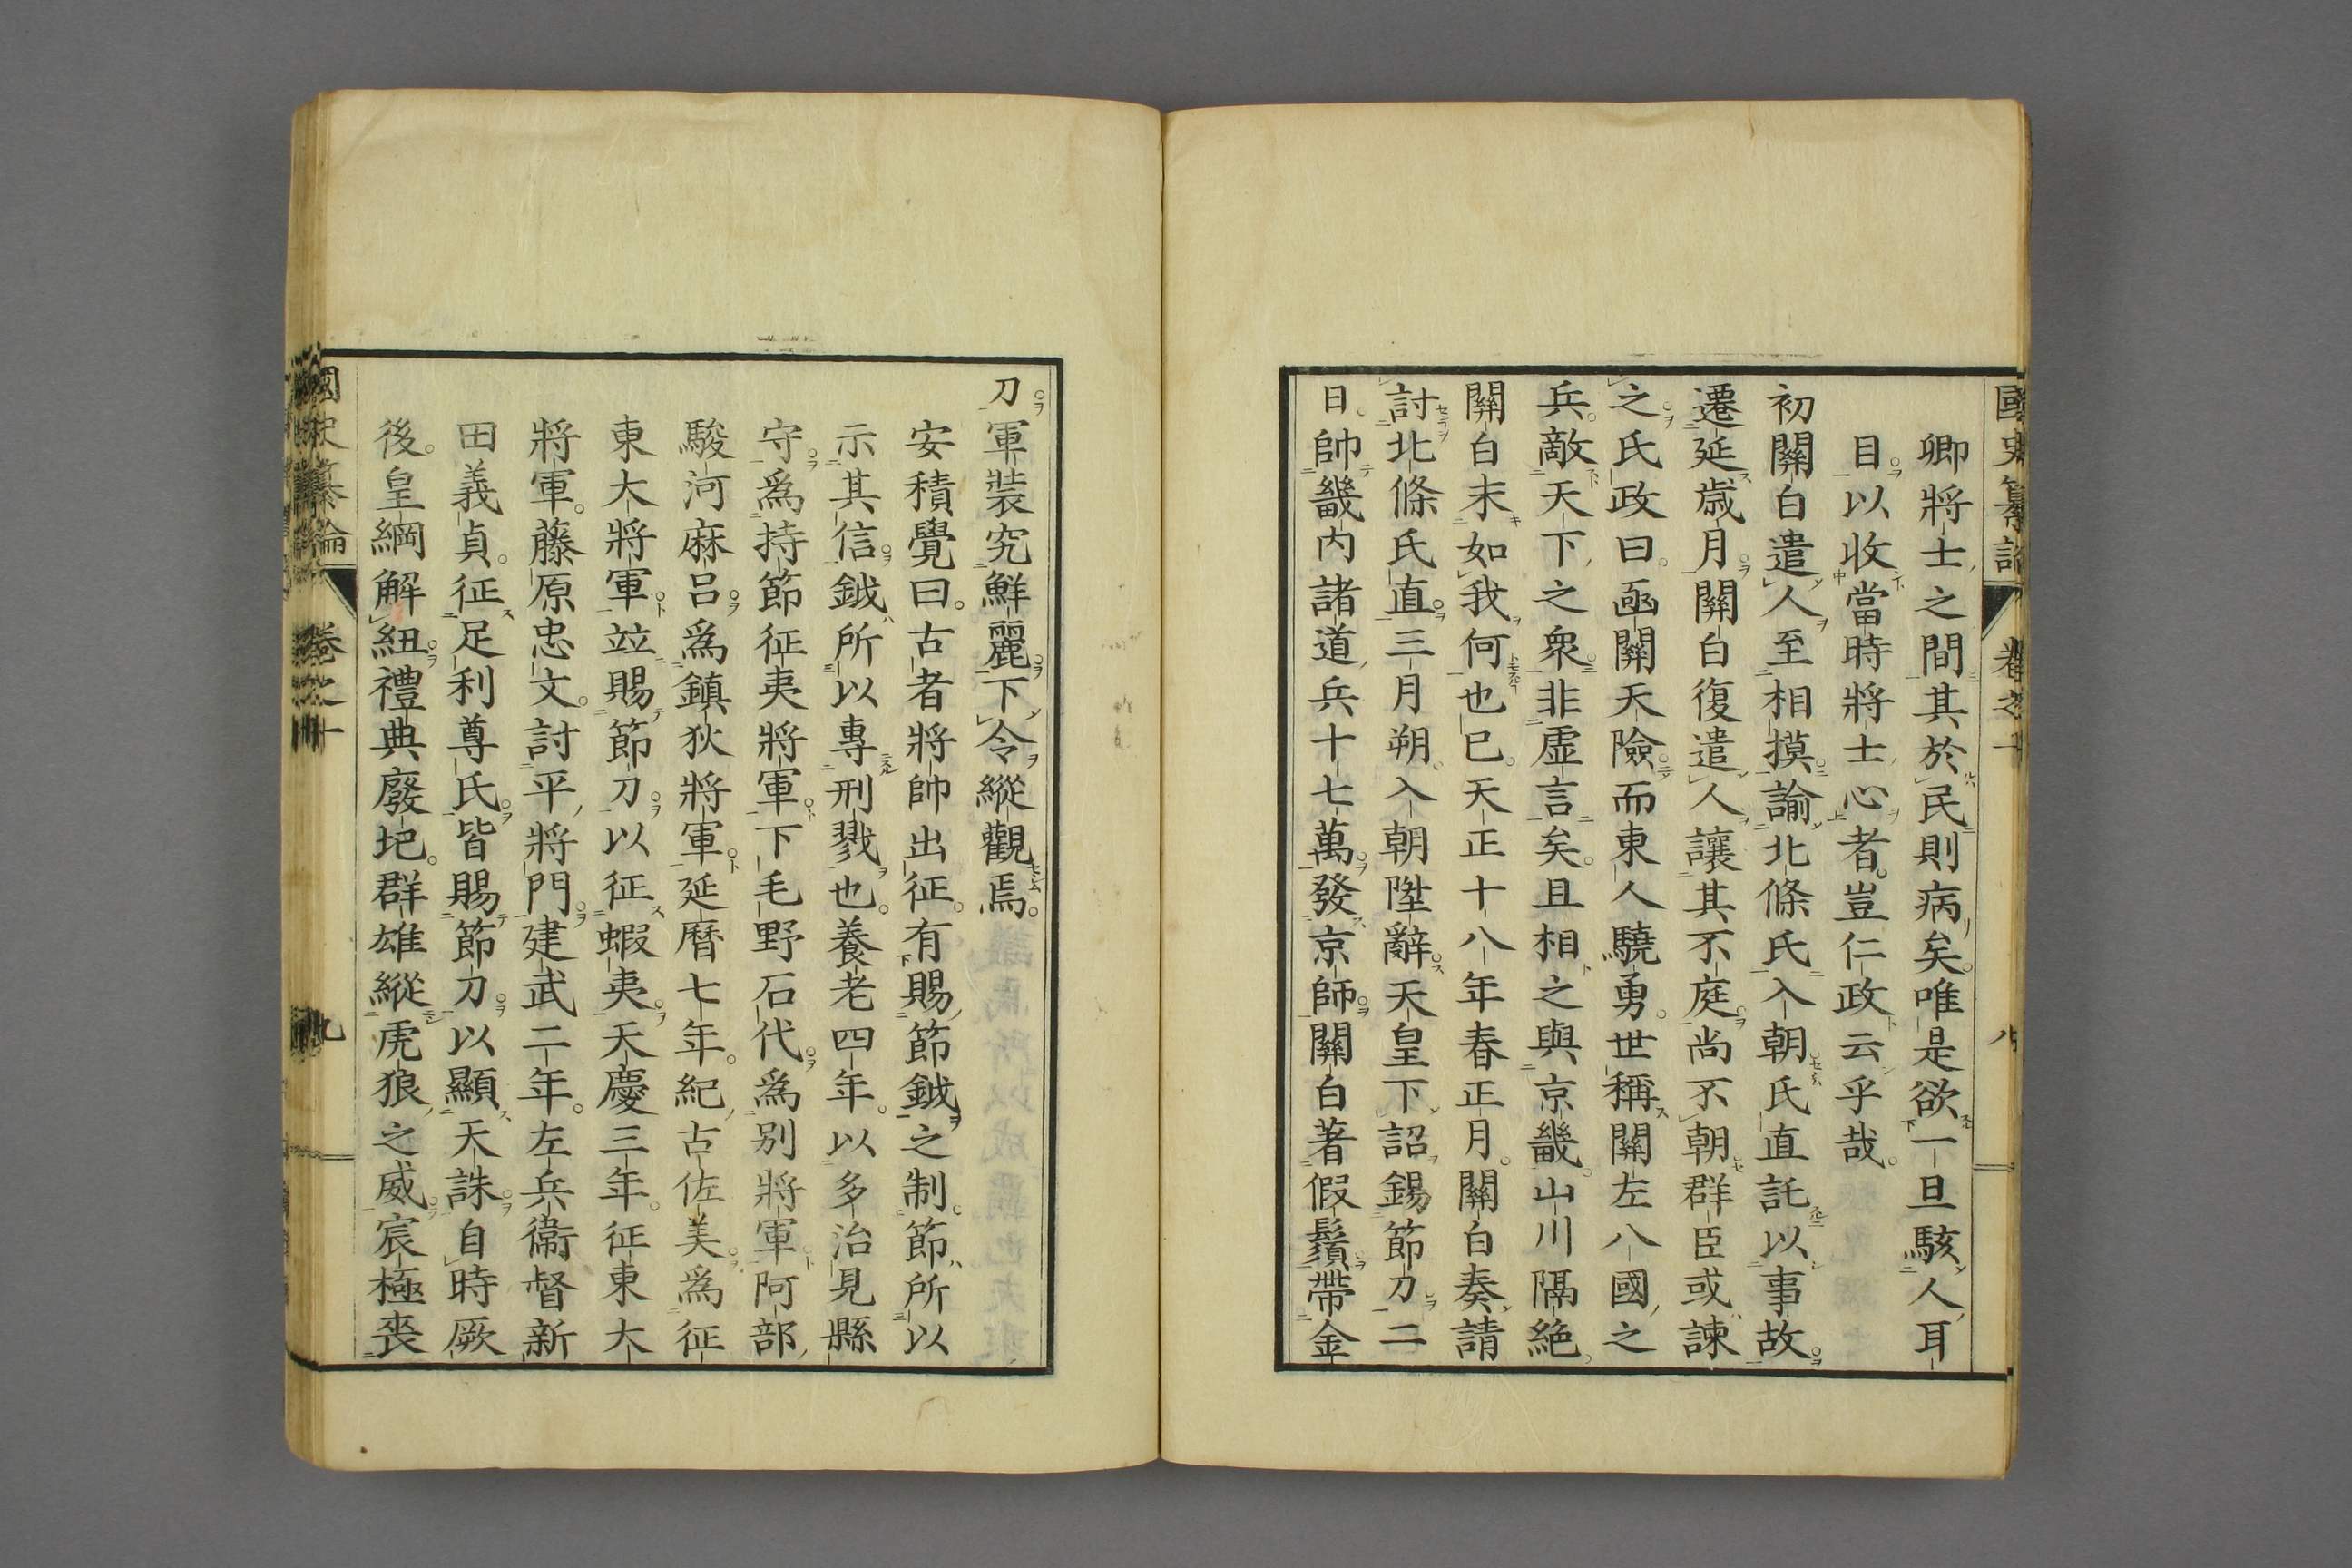 國史纂論 卷之十 八
卿將士之間其於民則病矣。唯是欲一旦駭人耳
目。以收當時將士心者。豈仁政云乎哉。
初關白遣人至相摸諭北條氏入朝氏直託以事故
遷延歳月關白復遣人讓其不庭尚不朝群臣或諫
之氏政曰。函關天險而東人驍勇。世稱關左八國之
兵。敵天下之衆非虛言矣。且相之與京畿。山川隔絶。
關白末如我何也已。天正十八年春正月。關白奏請
討北條氏直三月朔入朝陛辭天皇下詔錫節刀二
日。帥畿内諸道兵十七萬發京師關白著假鬚帶金
刀軍裝究鮮麗下令縱觀焉。
安積覺曰。古者將帥出征。有賜節鉞之制。節所以
示其信鉞所以專刑戮也。養老四年。以多治見縣
守爲持節征夷將軍下毛野石代爲別將軍阿部
駿河麻呂爲鎭狄將軍延曆七年。紀古佐美爲征
東大將軍竝賜節刀以征蝦夷天慶三年。征東大
將軍。藤原忠文。討平將門建武二年。左兵衞督新
田義貞。征足利尊氏皆賜節刀以顯天誅自時厥
後。皇綱解紐禮典廢圯。群雄縱虎狼之威宸極喪
國史纂論 卷之十 九